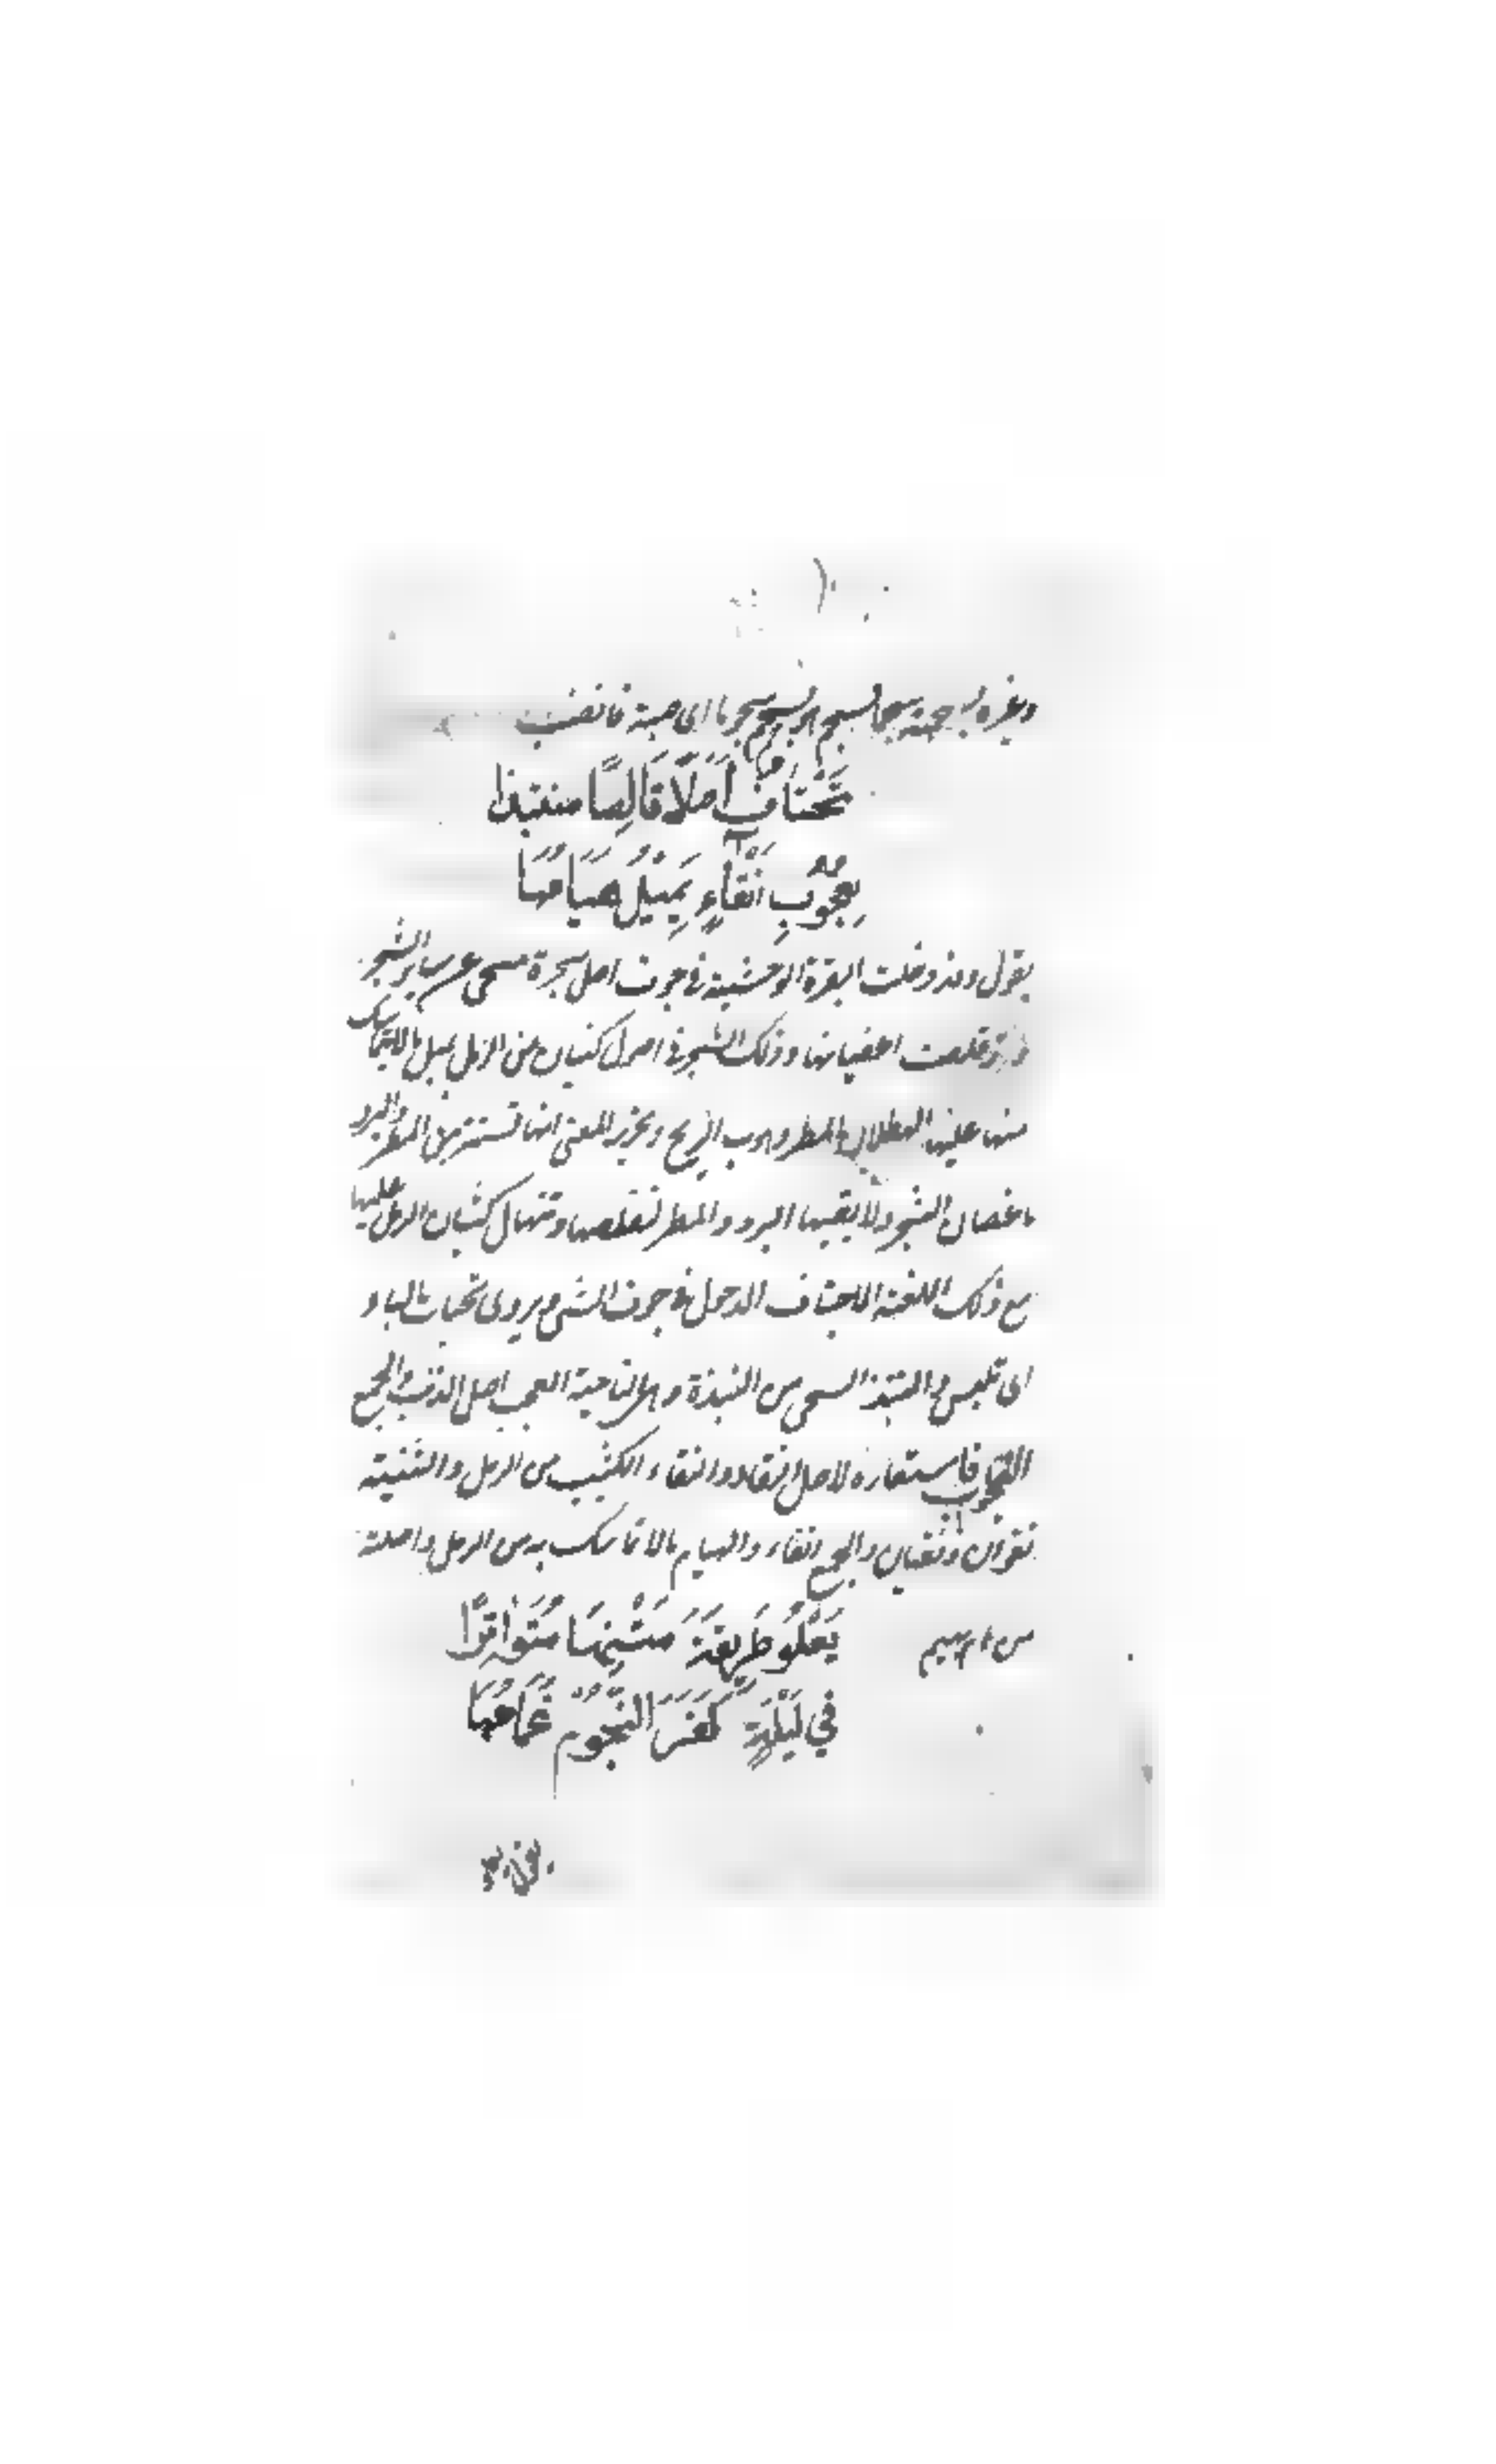 وغيره يسجمه سجما فسجم هو يسجم سجوما اى صبه فانصب
تَجْتَافُ أَصْلًا قَالِصًا متنبذا
بِعُجُوْبِ أَنْقَآءٍ يَمِيْلُ هَيَامُهَا
يقول وقد دخلت البقرة الوحشية فى جوف اصل شجرة متنحى عن ساير الشجر
وقد قلصت اغصانها وذلك الشجر فى اصول كثبان من الرمل يميل مالا يتماسك
منها عليها لهطلان المطر وهبوب الريح وتحرير المعنى انها تستتر من المطر والبرد
باغصان الشجر ولا يقيها البرد والمطر لتقلصها وتنهال كثبان الرمل عليها
مع ذلك اللغة الاجتياف الدخول فى جوف الشى ويروى تجتاب بالباء
اى تلبس والمتنبذ المتنحى من النبذة وهى الناحية العجب اصل الذنب والجمع
العجوب فاستعاره لاصل النقا والنقاء الكثيب من الرمل والتثنية
نقوان ونقيان والجمع انقاء والهيام مالا تماسك به من الرمل واصله
من هام يهيم يَعْلُو طَرِيقَةَ مَتْنِهَا مُتَوَاتِرًا
فِي لَيْلَةٍ كَفَرَ النُّجُوْمَ غَمَامُهَا